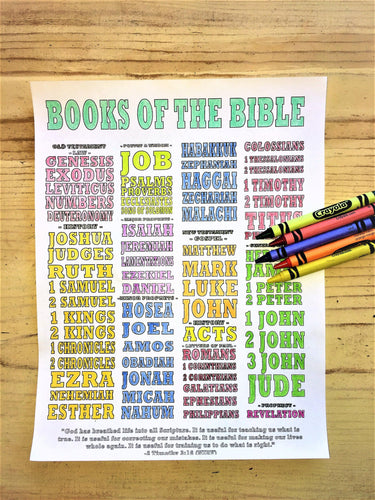 BOOKS OF THE BIBLE
OLD TESTAMENT
- LAW -
GENESIS
EXODUS
LEVITICUS
NUMBERS
DEUTERONOMY
- HISTORY -
JOSHUA
JUDGES
RUTH
1 SAMUEL
2 SAMUEL
1 KINGS
2 KINGS
1 CHRONICLES
2 CHRONICLES
EZRA
NEHEMIAH
ESTHER
- POETRY & WISDOM -
JOB
PSALMS
PROVERBS
ECCLESIASTES
SONG OF SOLOMON
- MAJOR PROPHETS -
ISAIAH
JEREMIAH
LAMENTATIONS
EZEKIEL
DANIEL
- MINOR PROPHETS -
HOSEA
JOEL
AMOS
OBADIAH
JONAH
MICAH
NAHUM
HABAKKUK
ZEPHANIAH
HAGGAI
ZECHARIAH
MALACHI
NEW TESTAMENT
- GOSPEL -
MATTHEW
MARK
LUKE
JOHN
- HISTORY -
ACTS
- LETTERS OF PAUL -
ROMANS
1 CORINTHIANS
2 CORINTHIANS
GALATIANS
EPHESIANS
PHILIPPIANS
COLOSSIANS
1 THESSALONIANS
2 THESSALONIANS
1 TIMOTHY
2 TIMOTHY
TITUS
1 PETER
2 PETER
1 JOHN
2 JOHN
3 JOHN
JUDE
- PROPHECY -
REVELATION
"God has breathed life into all Scripture. It is useful for teaching us what is
true. It is useful for correcting our mistakes. It is useful for making our lives
whole again. It is useful for training us to do what is right."
Crayola